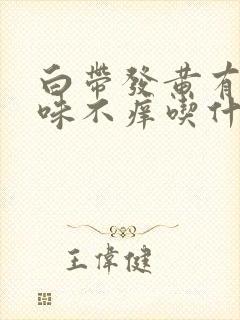 白帶發黄有
味不痒喫什
王偉健